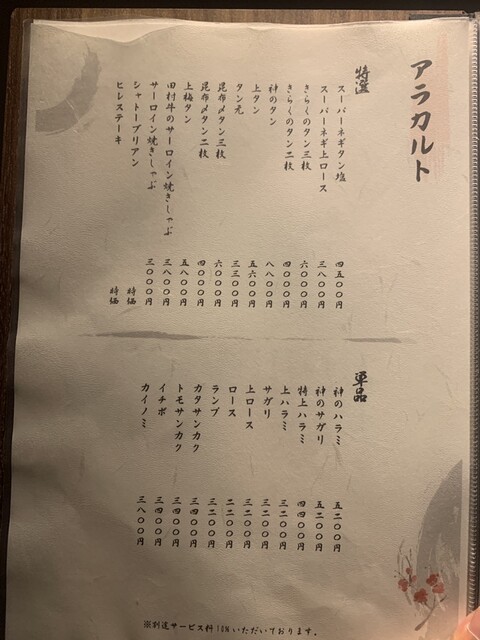 アラカルト
特選
スーパーネギタン塩 四五〇〇円
スーパーネギ上ロース 三八〇〇円
きらくのタン三枚 六〇〇〇円
きらくのタン二枚 四〇〇〇円
神のタン 八八〇〇円
上タン 五六〇〇円
タン元 三三〇〇円
昆布〆タン三枚 六〇〇〇円
昆布〆タン二枚 四〇〇〇円
上梅タン 五八〇〇円
田村牛のサーロイン焼きしゃぶ 三八〇〇円
サーロイン焼きしゃぶ 三〇〇〇円
シャトーブリアン 特価
ヒレステーキ 特価
単品
神のハラミ 五二〇〇円
神のサガリ 五二〇〇円
特上ハラミ 四四〇〇円
上ハラミ 三二〇〇円
サガリ 三二〇〇円
上ロース 三二〇〇円
ロース 二二〇〇円
ランプ 三二〇〇円
カタサンカク 三四〇〇円
トモサンカク 三四〇〇円
イチボ 三四〇〇円
カイノミ 三八〇〇円
※別途サービス料10%いただいております。